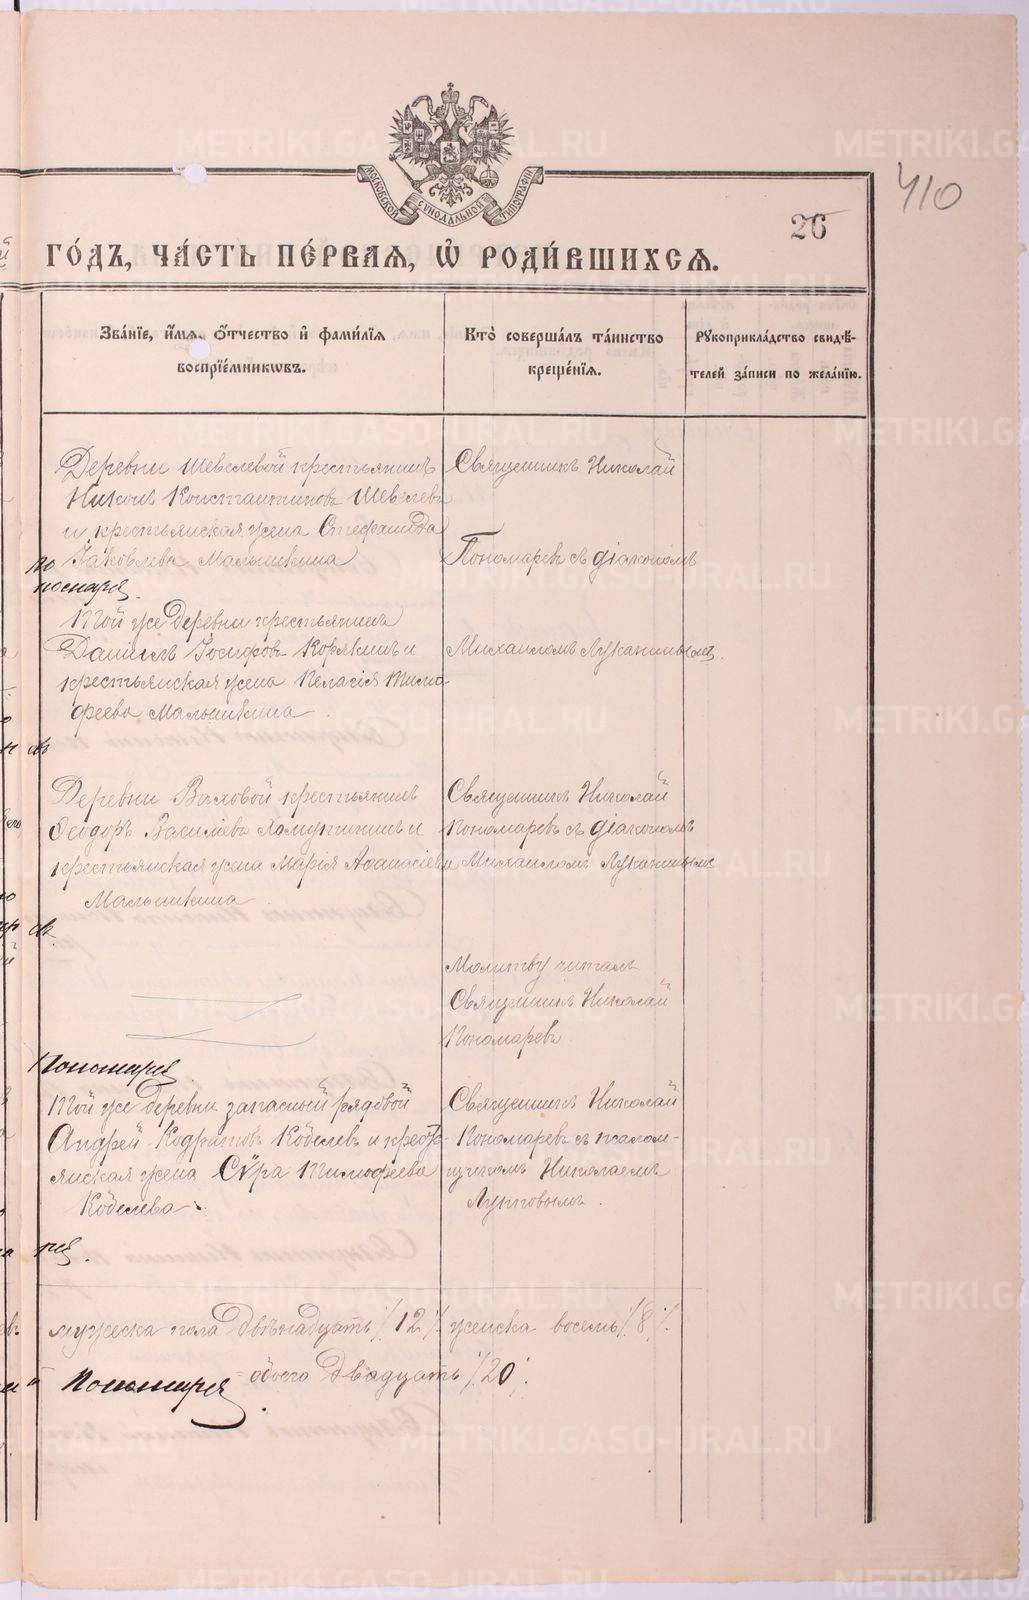 МОСКОВСКОЙ СѴНОДАЛЬНОЙ ТИПОГРАФІИ
410
26
ГО́ДЪ, ЧА́СТЬ ПЕ́РВАЯ, Ѽ РОДИ́ВШИХСЯ.
Зва́нїе, и҆́мя, ѻ҆́тчество и҆ фами́лїя
воспрїе́мникѡвъ.
Кто̀ соверша́лъ та́инство
креще́нїя.
Рꙋкоприкла́дство свидѣ́-
телей за́писи по жела́нїю.
Деревни Шевелевой крестьянинъ
Никонъ Константиновъ Шевелевъ
и крестьянская жена Стефанида
Іаковлева Малышкина
Священникъ Николай
Пономаревъ съ діакономъ
Михаиломъ Луканинымъ.
Той же деревни крестьянинъ
Даніилъ Іосифовъ Корякинъ и
крестьянская жена Пелагія Тимо-
феева Малышкина.
Деревни Валовой крестьянинъ
Ѳеодоръ Василіевъ Хомутининъ и
крестьянская жена Марія Аѳанасіева
Малышкина
Священникъ Николай
Пономаревъ съ діакономъ
Михаиломъ Луканинымъ
Молитву читалъ
Священникъ Николай
Пономаревъ
Пономарев
Той же деревни запасный рядовой
Андрей Кодратовъ Кобелевъ и кресть-
янская жена Сѵра Тимофеева
Кобелева.
Священникъ Николай
Пономаревъ съ псалом-
щикомъ Николаемъ
мужеска пола двѣнадцать /12/ женска восемь /8/
обоего двадцать /20/
Пономарев
METRIKI.GASO-URAL.RU